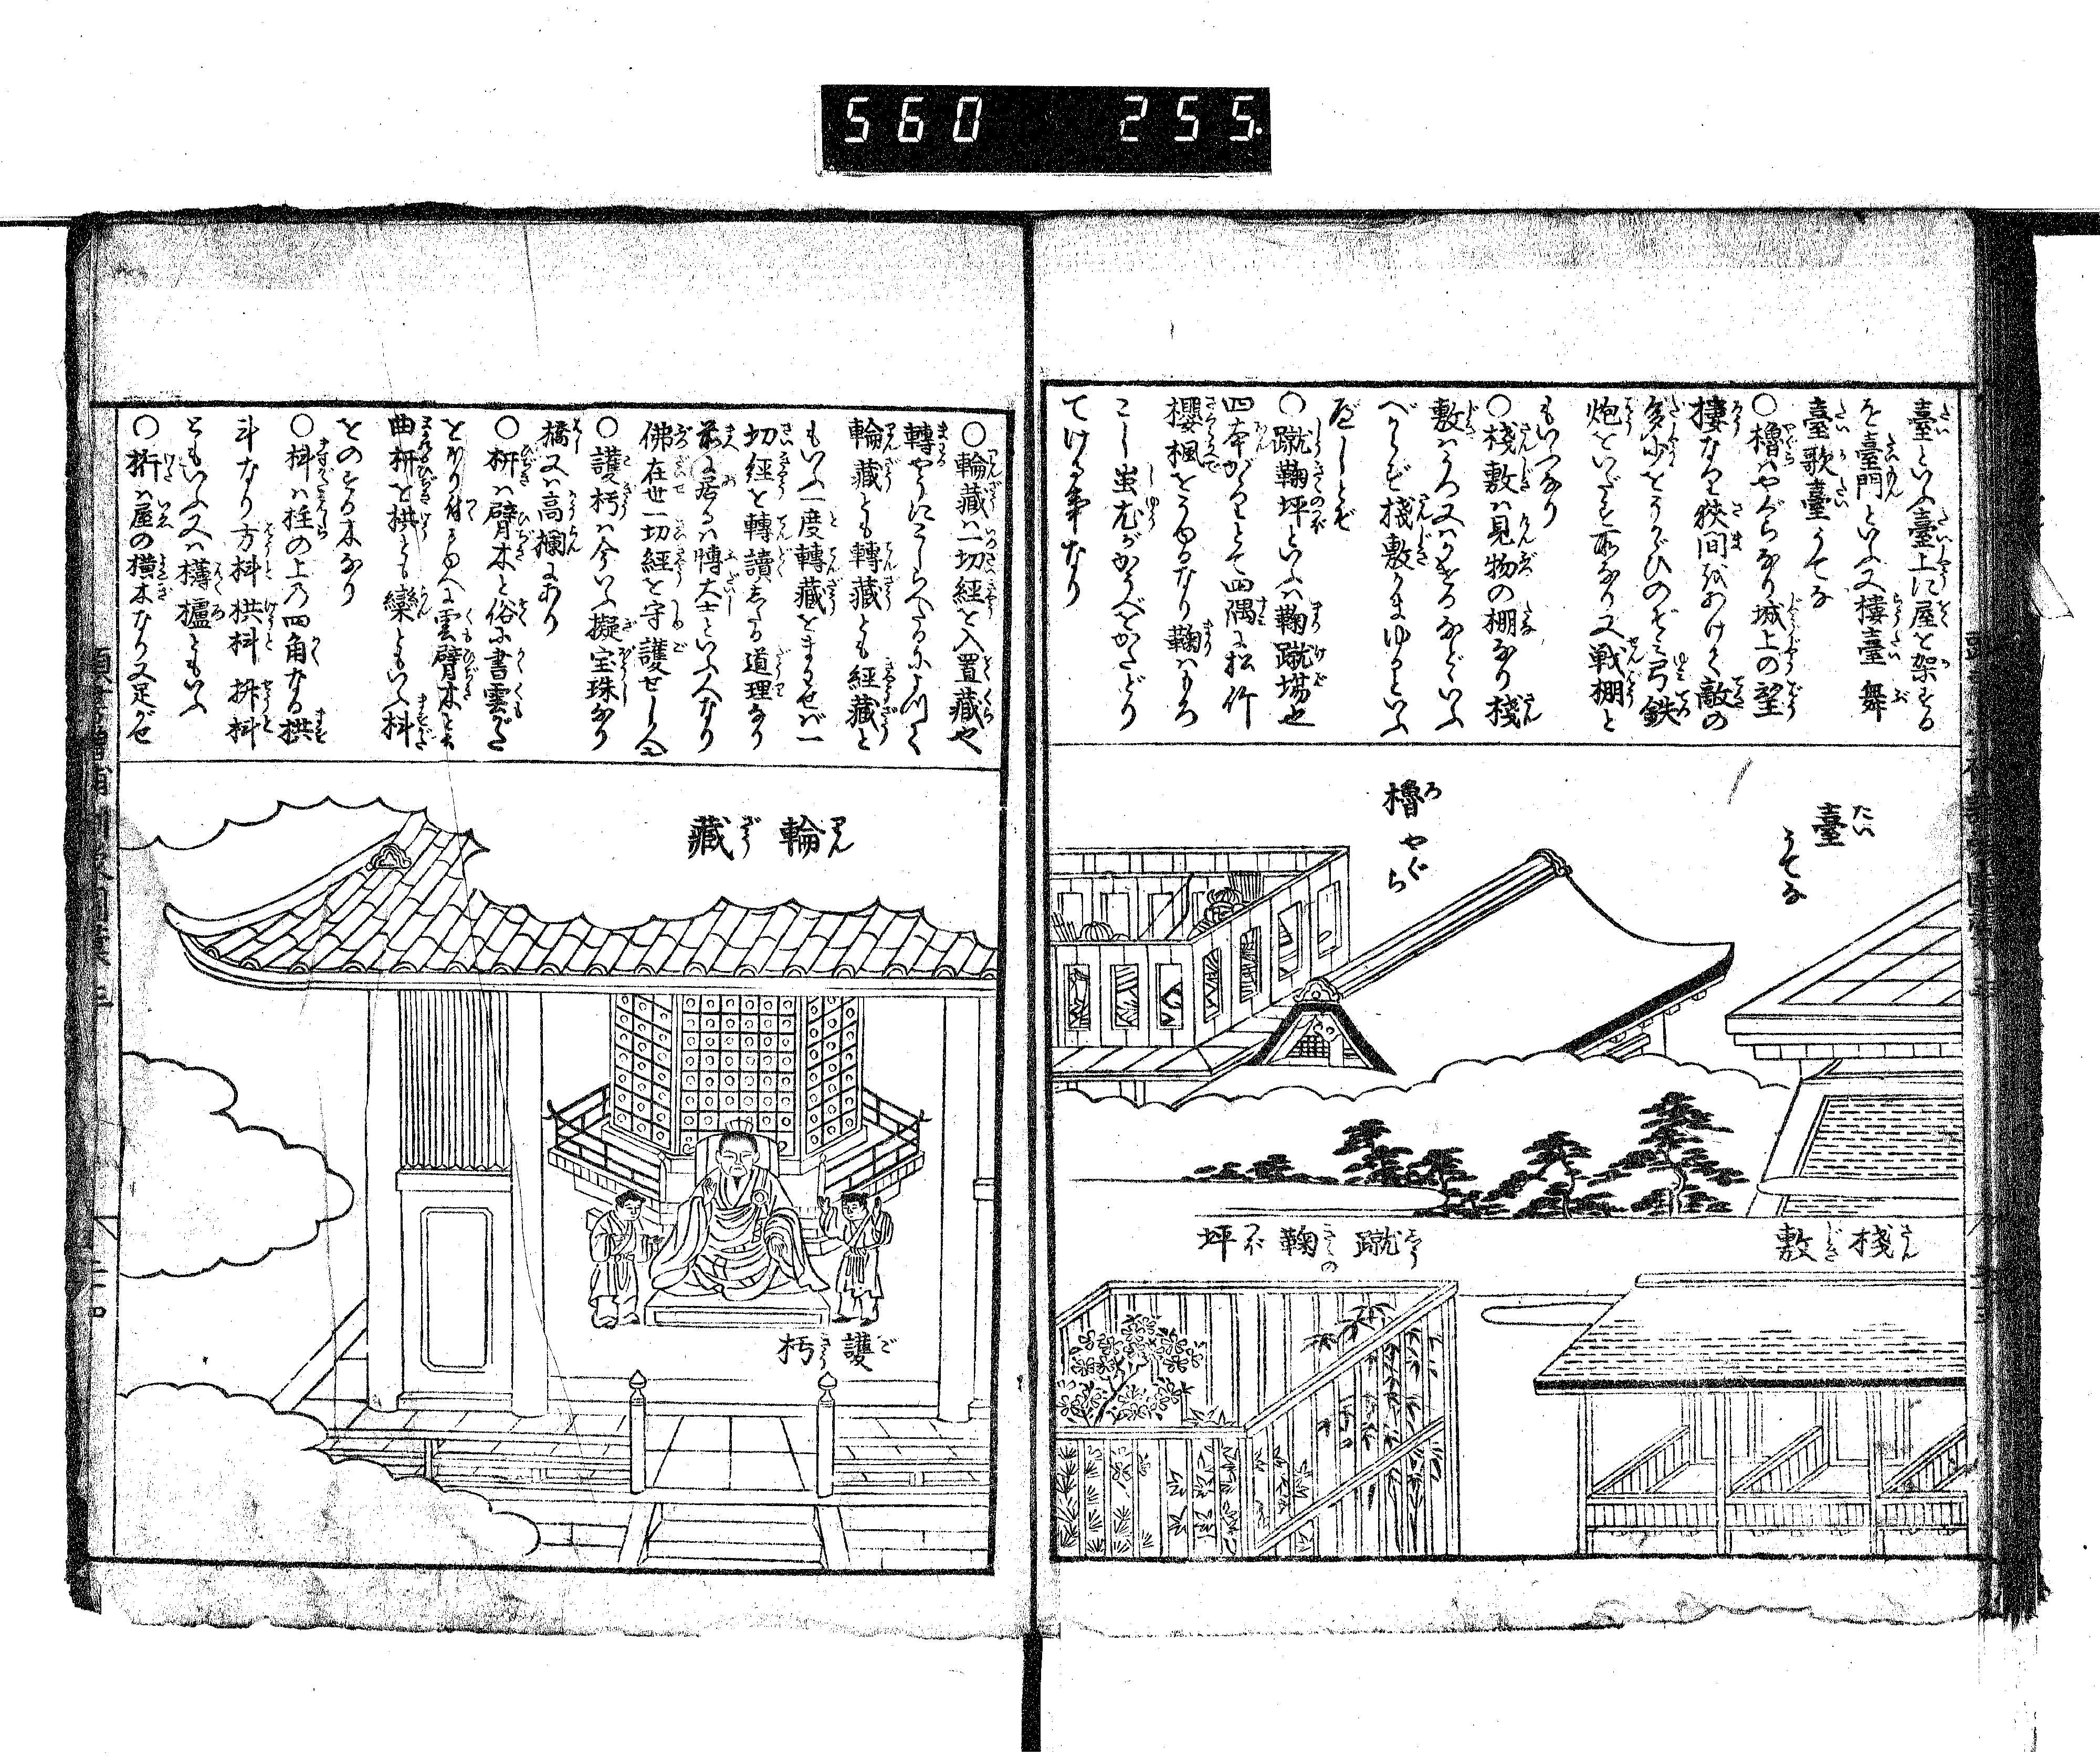 560 255.
臺といふ臺上に屋を架する
を臺門といふ又樓臺舞
臺歌臺うてな
○櫓はやぐらなり城上の望
樓なり狹間をあけて敵の
多少をうかゞひのぞき弓鉄
炮をいだす所なり又戦棚と
もいふなり
○棧敷は見物の棚なり棧
敷は
べからず棧敷かまゆるといふ
べしとぞ
○蹴鞠坪といふは鞠蹴場也
四本がゝりとて四隅に松竹
櫻楓をうゆるなり鞠はもろ
こし蚩尤がかうべをかたどり
てける事なり
臺 たい うてな
櫓 ろ やぐら
棧敷 さんじき
蹴鞠坪 しうきくのつぼ
○輪藏は一切経を入置藏也
轉やうにこしらへたるによつて
輪藏とも轉藏とも経藏と
もいふ一度轉藏をまはせば一
切経を轉讀する道理なり
前に居るは傅大士といふ人なり
佛在世一切経を守護せし人
○護朽は今いふ擬宝珠なり
橋又は高欄にあり
○枅は臂木と俗に書雲がた
をほり付るゆへに雲臂木といふ
曲枅を栱とも欒ともいふ枓
をのする木なり
○枓は柱の上乃四角なる栱
斗なり方枓栱枓枡枓
ともいふ又は欂櫨ともいふ
○桁は屋の横木なり又足がせ
輪藏 りんざう
護朽 ごきう